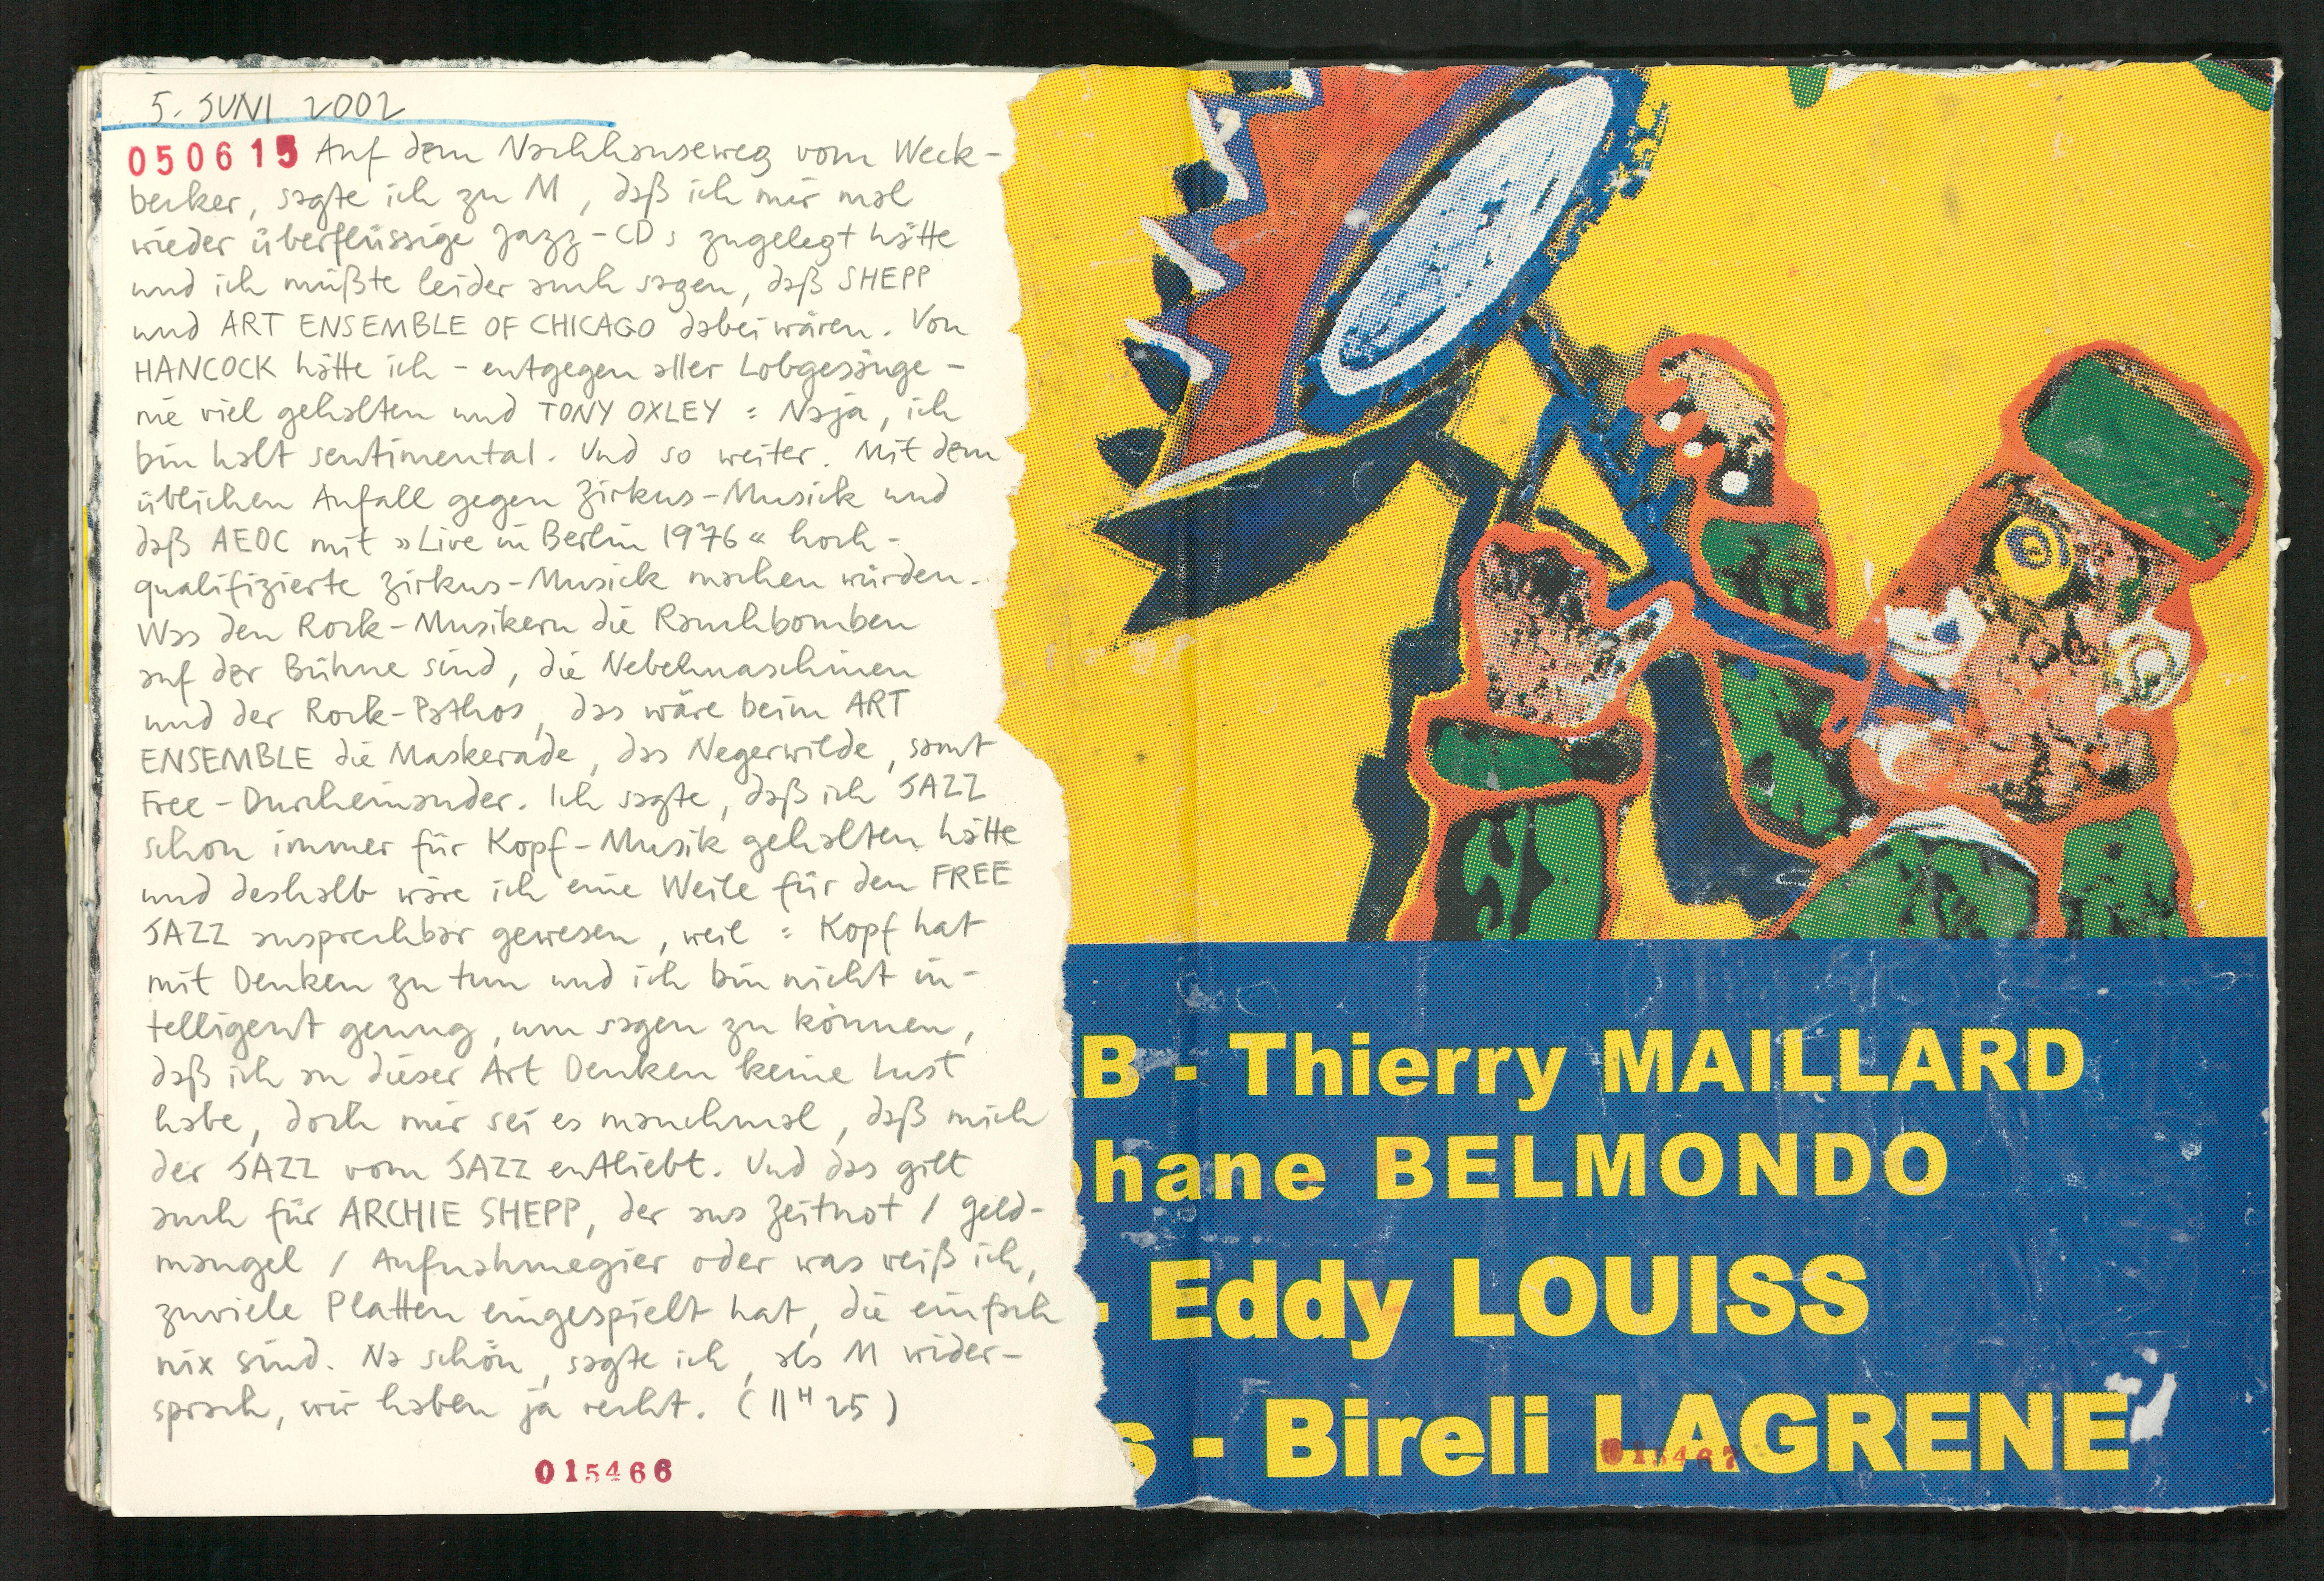 5. JUNI 2002
050615 Auf dem Nachhauseweg vom Weck-
becker, sagte ich zu M, daß ich mir mal
wieder überflüssige Jazz-CDs zugelegt hätte
und ich müßte leider auch sagen, daß SHEPP
und ART ENSEMBLE OF CHICAGO dabei wären. Von
HANCOCK hätte ich - entgegen aller Lobgesänge -
nie viel gehalten und TONY OXLEY : Naja, ich
bin halt sentimental. Und so weiter. Mit dem
üblichen Anfall gegen Zirkus-Musick und
daß AEOC mit »Live in Berlin 1976« hoch-
qualifizierte Zirkus-Musick machen würden.
Was den Rock-Musikern die Rauchbomben
auf der Bühne sind, die Nebelmaschinen
und der Rock-Pathos, das wäre beim ART
ENSEMBLE die Maskerade, das Negerwilde, samt
Free-Durcheinander. Ich sagte, daß ich JAZZ
schon immer für Kopf-Musik gehalten hätte
und deshalb wäre ich eine Weile für den FREE
JAZZ ansprechbar gewesen, weil : Kopf hat
mit Denken zu tun und ich bin nicht in-
telligent genug, um sagen zu können,
daß ich an dieser Art Denken keine Lust
habe, doch mir sei es manchmal, daß mich
der JAZZ vom JAZZ entliebt. Und das gilt
auch für ARCHIE SHEPP, der aus Zeitnot / Geld-
mangel / Aufnahmegier oder was weiß ich,
zuviele Platten eingespielt hat, die einfach
nix sind. Na schön, sagte ich, als M wider-
sprach, wir haben ja recht. (11H25)
015466
B - Thierry MAILLARD
phane BELMONDO
- Eddy LOUISS
s - Bireli LAGRENE
015467